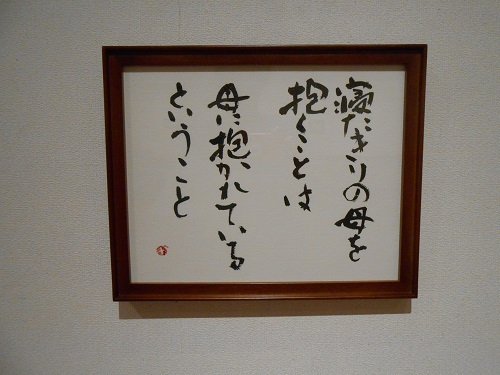 寝たきりの母を
抱くことは
母に抱かれている
ということ